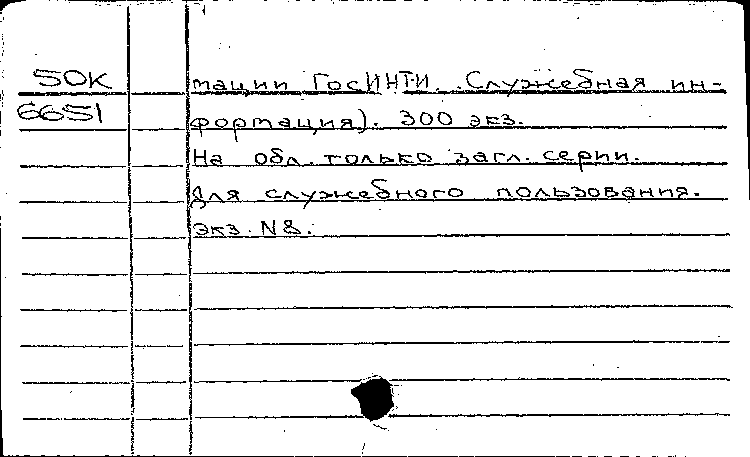 50К
6651
тации ГосИНТИ. Служебная ин-
формация). 300 экз.
На обл. только загл. серии.
Для служебного пользования.
Экз. N8.